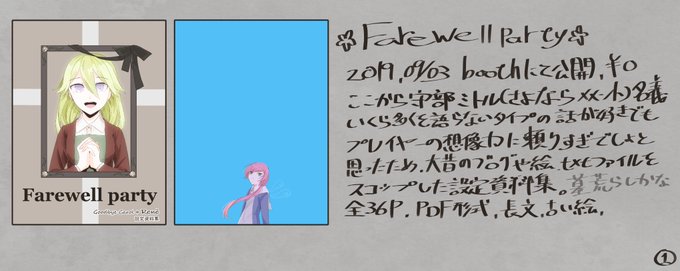 Farewell party
Goodbye Carol * René
設定資料集
Farewell party
2019,09/03 boothにて公開,¥0
ここから守部ミトル(さよならxx-小)名義
いくら多くを語らないタイプの話が好きでも
プレイヤーの想像力に頼りすぎでしょと
思ったため、大昔のブログや絵、txtファイルを
スコップした設定資料集。墓荒らしかな
全36P. PDF形式,長文,古い絵,
1